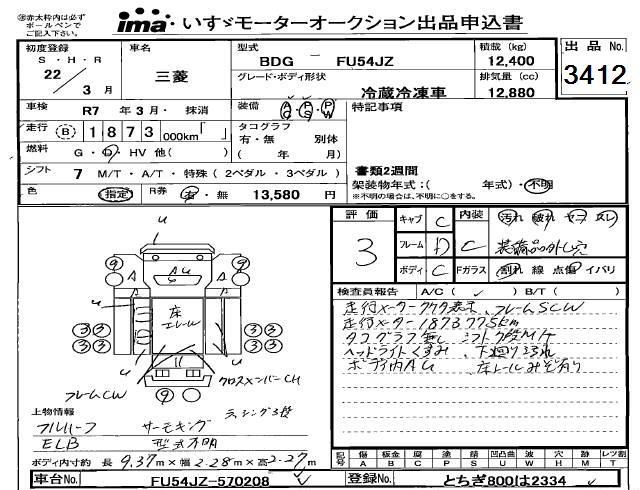 ※赤太枠内は必ず
ボールペンで
ご記入下さい。
ima いすゞモーターオークション出品申込書
初度登録 車名 型式 積載 (kg) 出品 No.
S・H・R BDG － FU54JZ 12,400
22 三菱 グレード・ボディ形状 排気量 (cc) 3412
3 月 冷蔵冷凍車 12,880
車検 R7 年 3 月・ 抹消 装備 AC PS PW 特記事項
走行 B 1 8 7 3 000km「 」 タコグラフ
有・無 別体
燃料 G・D・HV 他( ) ( 年 月)
シフト 7 M/T・A/T・特殊 (2ペダル・3ペダル) 書類2週間
架装物年式：( 年式)・不明
※不明の場合は、不明に○をする。
色 指定 R券 有・無 13,580 円
評価 キャブ C 内装 汚れ 破れ コゲ スレ
3 フレーム D C 装備品外し穴
ボディ C Fガラス 割れ 線 点傷 イバリ
検査員報告 A/C ( ✓ ) B/T ( )
走行メーター フレームSCW
走行メーター187377.5km
タコグラフ無し
ヘッドライトくすみ、下廻り
ボディ内AU 床レールみぞ有り
u
9 AU 9
A A
u u
床
エレール
3 3 3 3
3 3 3 3
フレームCW クロスメンバーCH
9
ラッシング3段
上物情報
フルハーフ サーモキング
ELB 型式不明
ボディ内寸約 長 9.37m×幅 2.28m×高 2.27m
記号 傷 板金 腐 塗 錆 凹凸曲 波 穴 跡 レツ割
A B C P S U W H M T
車台No. FU54JZ-570208 登録No. とちぎ800は2334